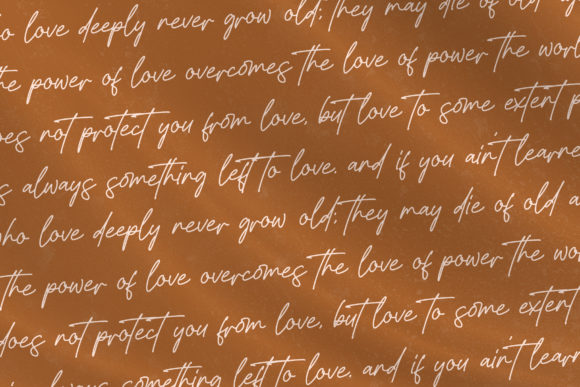 who love deeply never grow old; they may die of old
the power of love overcomes the love of power the wor
does not protect you from love, but love to some extent p
s always something left to love. and if you ain't learne
who love deeply never grow old; they may die of old a
the power of love overcomes the love of power the wo
does not protect you from love, but love to some extent
always something left to love. and if you ain't learn